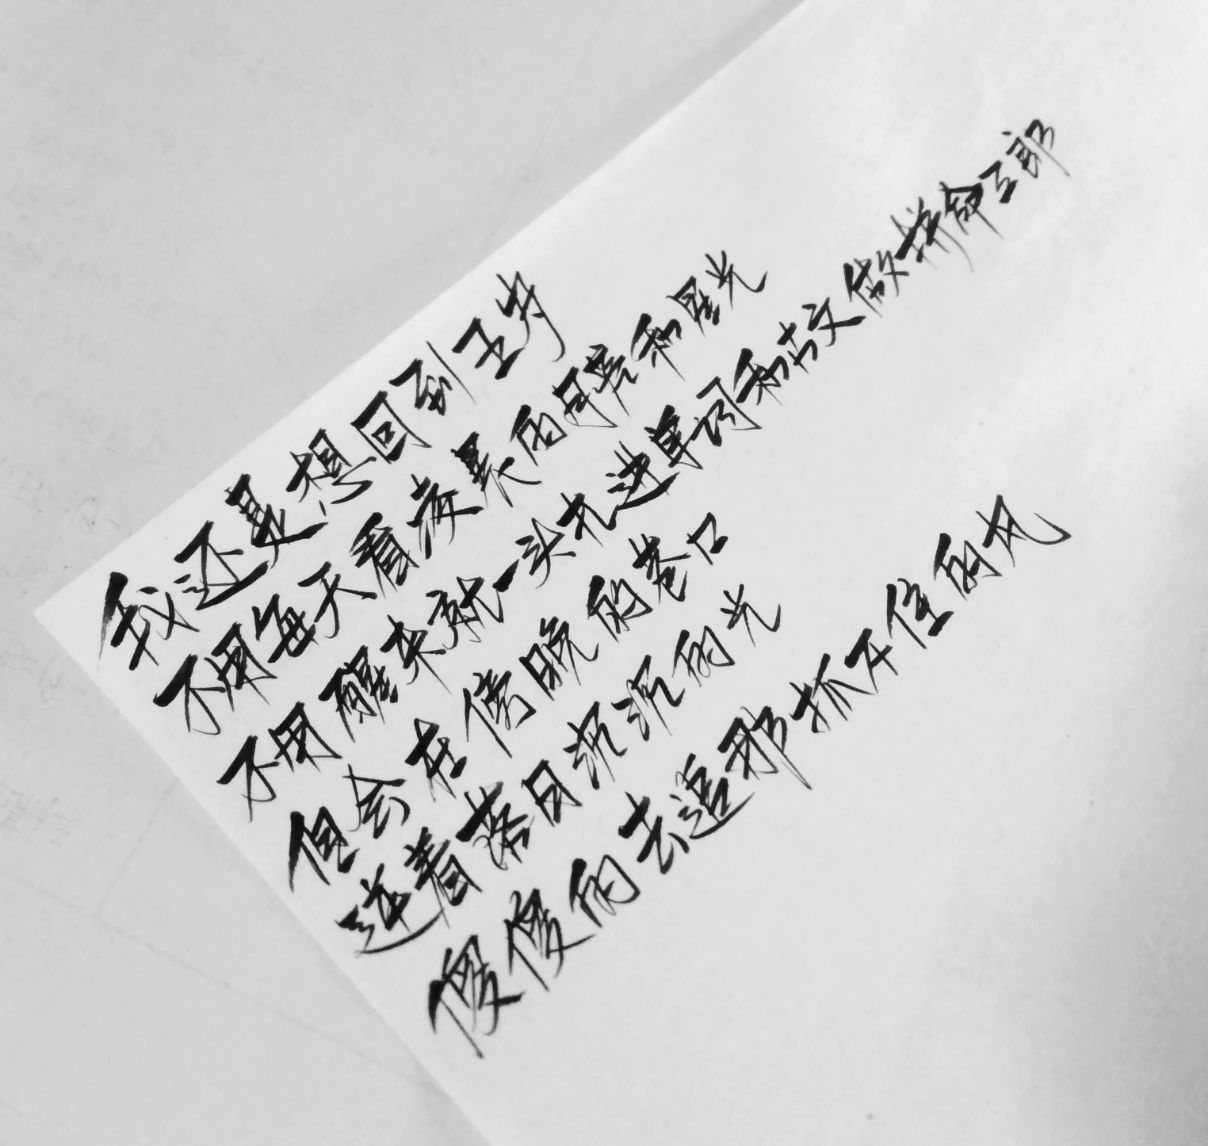 我还是想回到五岁
不用每天看凌晨的月亮和星光
不用醒来就一头扎进单词和古文做拼命三郎
但会在傍晚的巷口
逆着落日沉沉的光
傻傻的去追那抓不住的风